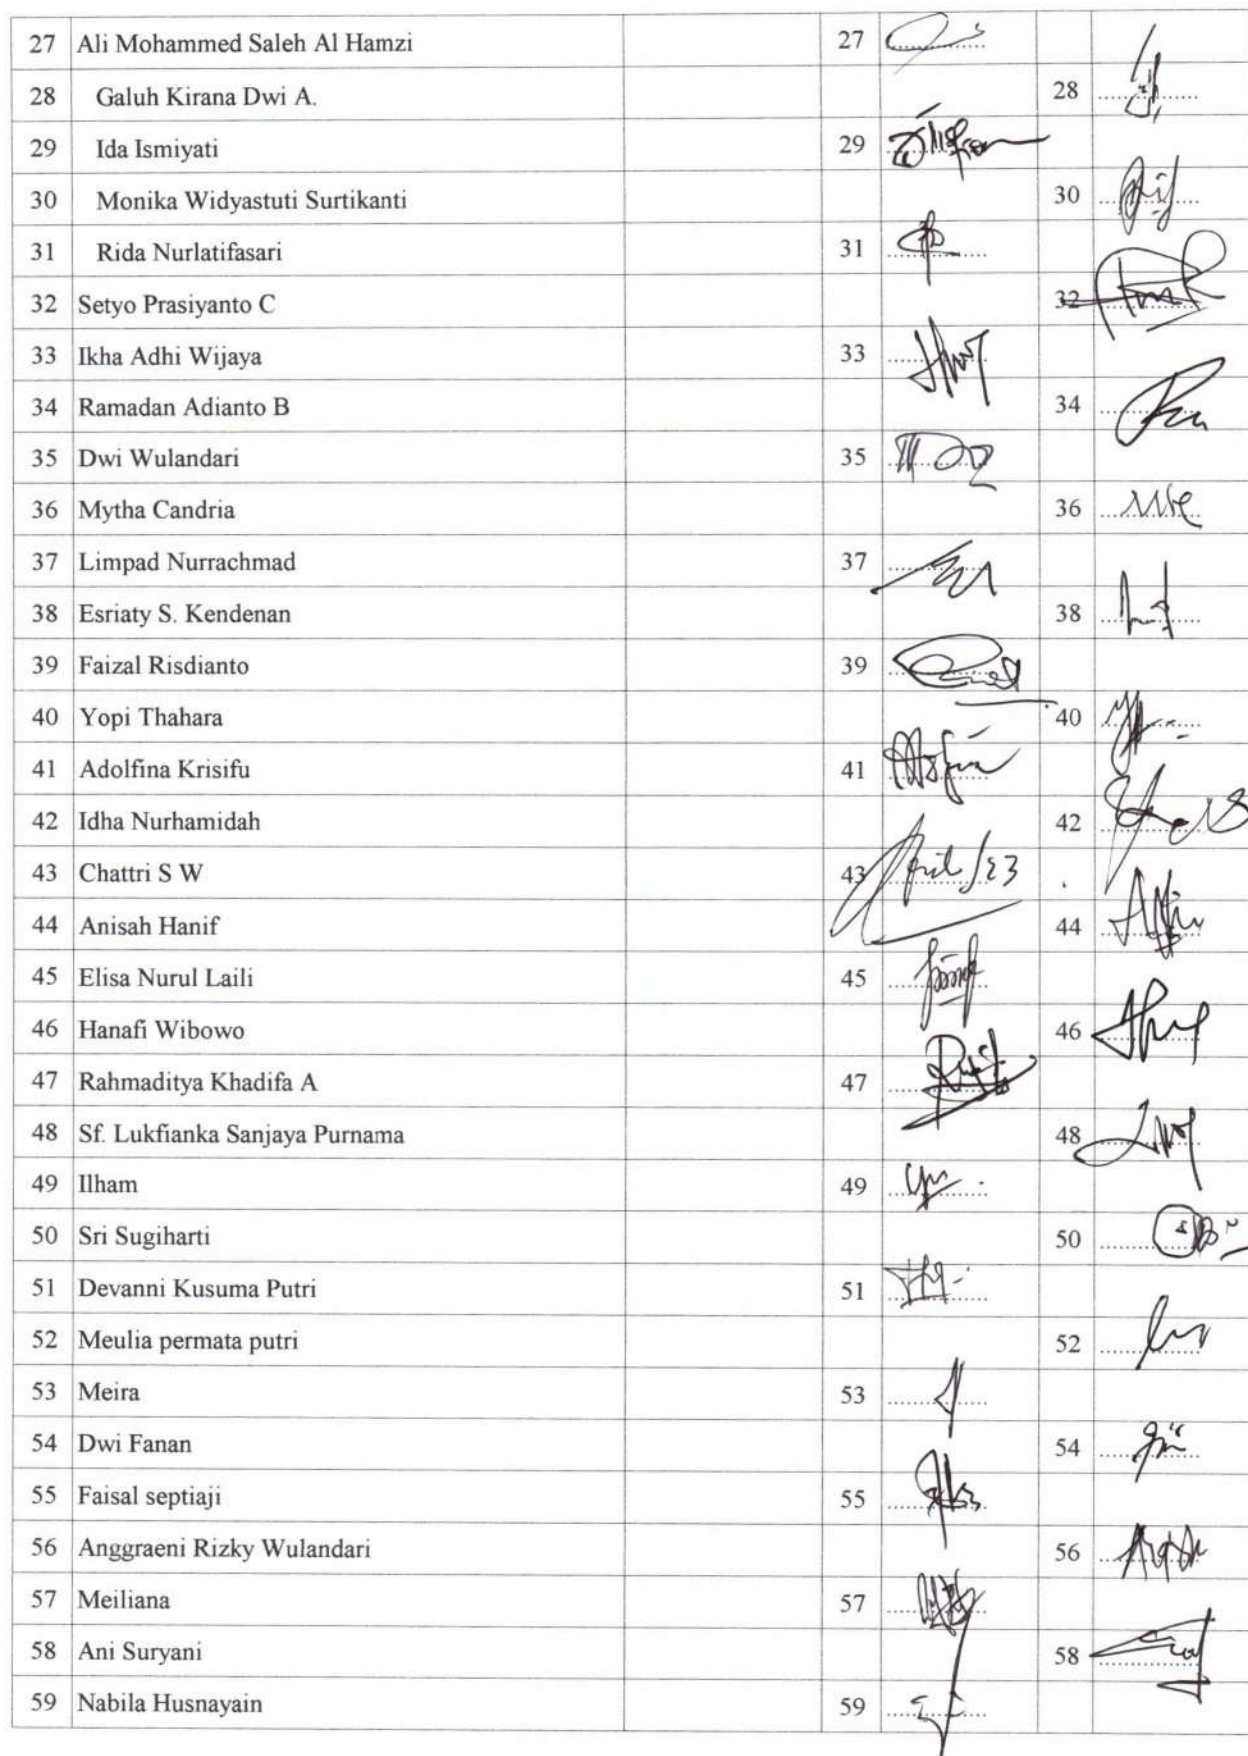 27 Ali Mohammed Saleh Al Hamzi 27
28 Galuh Kirana Dwi A. 28
29 Ida Ismiyati 29
30 Monika Widyastuti Surtikanti 30
31 Rida Nurlatifasari 31
32 Setyo Prasiyanto C 32
33 Ikha Adhi Wijaya 33
34 Ramadan Adianto B 34
35 Dwi Wulandari 35
36 Mytha Candria 36
37 Limpad Nurrachmad 37
38 Esriaty S. Kendenan 38
39 Faizal Risdianto 39
40 Yopi Thahara 40
41 Adolfina Krisifu 41
42 Idha Nurhamidah 42
43 Chattri S W 43
44 Anisah Hanif 44
45 Elisa Nurul Laili 45
46 Hanafi Wibowo 46
47 Rahmaditya Khadifa A 47
48 Sf. Lukfianka Sanjaya Purnama 48
49 Ilham 49
50 Sri Sugiharti 50
51 Devanni Kusuma Putri 51
52 Meulia permata putri 52
53 Meira 53
54 Dwi Fanan 54
55 Faisal septiaji 55
56 Anggraeni Rizky Wulandari 56
57 Meiliana 57
58 Ani Suryani 58
59 Nabila Husnayain 59